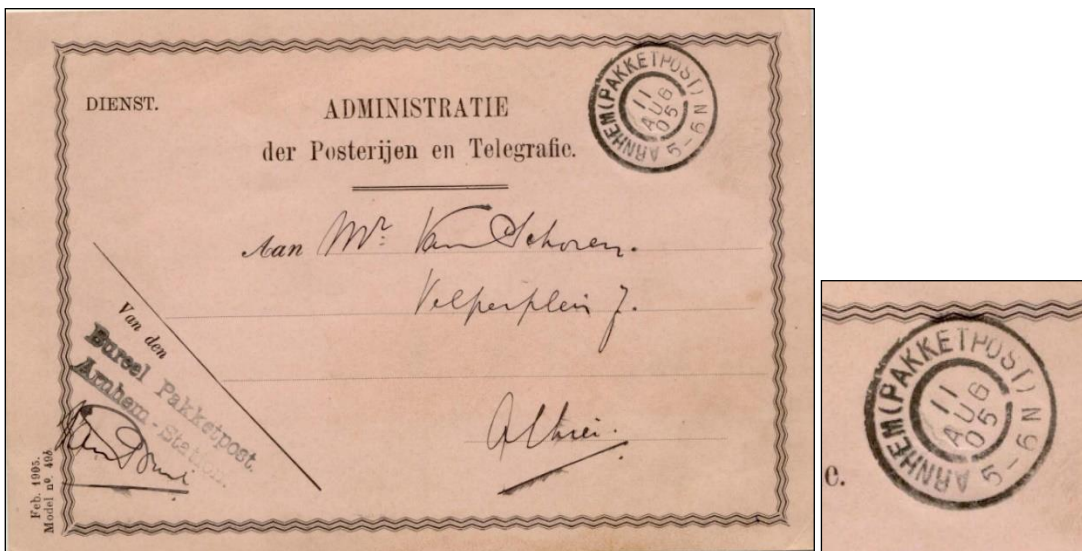 DIENST.
ADMINISTRATIE
der Posterijen en Telegrafie.
ARNHEM (PAKKETPOST)
11
AUG
05
5-6N
Aan Mr. Van Schoren.
Velperplein 7.
Alhier.
Van den
Bureel Pakketpost.
Arnhem-Station.
Feb. 1905.
Model nº. 49b
e.
ARNHEM (PAKKETPOST)
11
AUG
05
5-6N